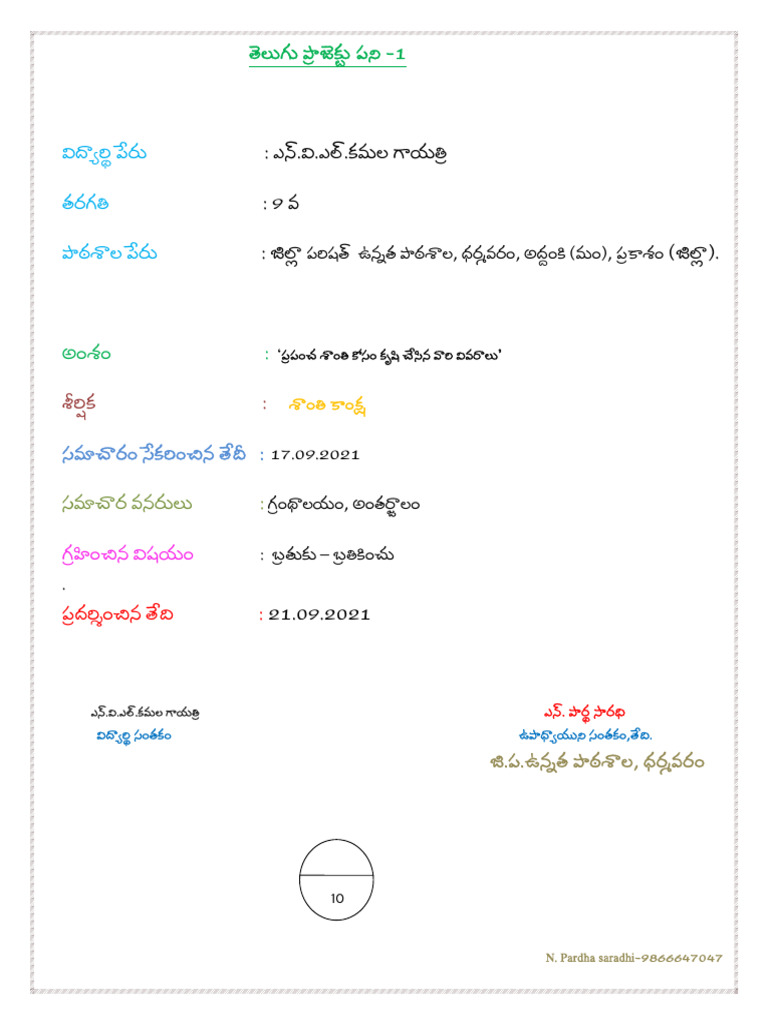 తెలుగు ప్రాజెక్టు పని -1
విద్యార్థి పేరు : ఎన్.వి.ఎల్.కమల గాయత్రి
తరగతి : 9 వ
పాఠశాల పేరు : జిల్లా పరిషత్ ఉన్నత పాఠశాల, ధర్మవరం, అద్దంకి (మం), ప్రకాశం (జిల్లా).
అంశం : ‘ప్రపంచ శాంతి కోసం కృషి చేసిన వారి వివరాలు'
శీర్షిక : శాంతి కాంక్ష
సమాచారం సేకరించిన తేదీ : 17.09.2021
సమాచార వనరులు : గ్రంథాలయం, అంతర్జాలం
గ్రహించిన విషయం : బ్రతుకు – బ్రతికించు
.
ప్రదర్శించిన తేది : 21.09.2021
ఎన్.వి.ఎల్.కమల గాయత్రి ఎన్. పార్థ సారథి
విద్యార్థి సంతకం ఉపాధ్యాయుని సంతకం,తేది.
జి.ప.ఉన్నత పాఠశాల, ధర్మవరం
10
N. Pardha saradhi-9866647047